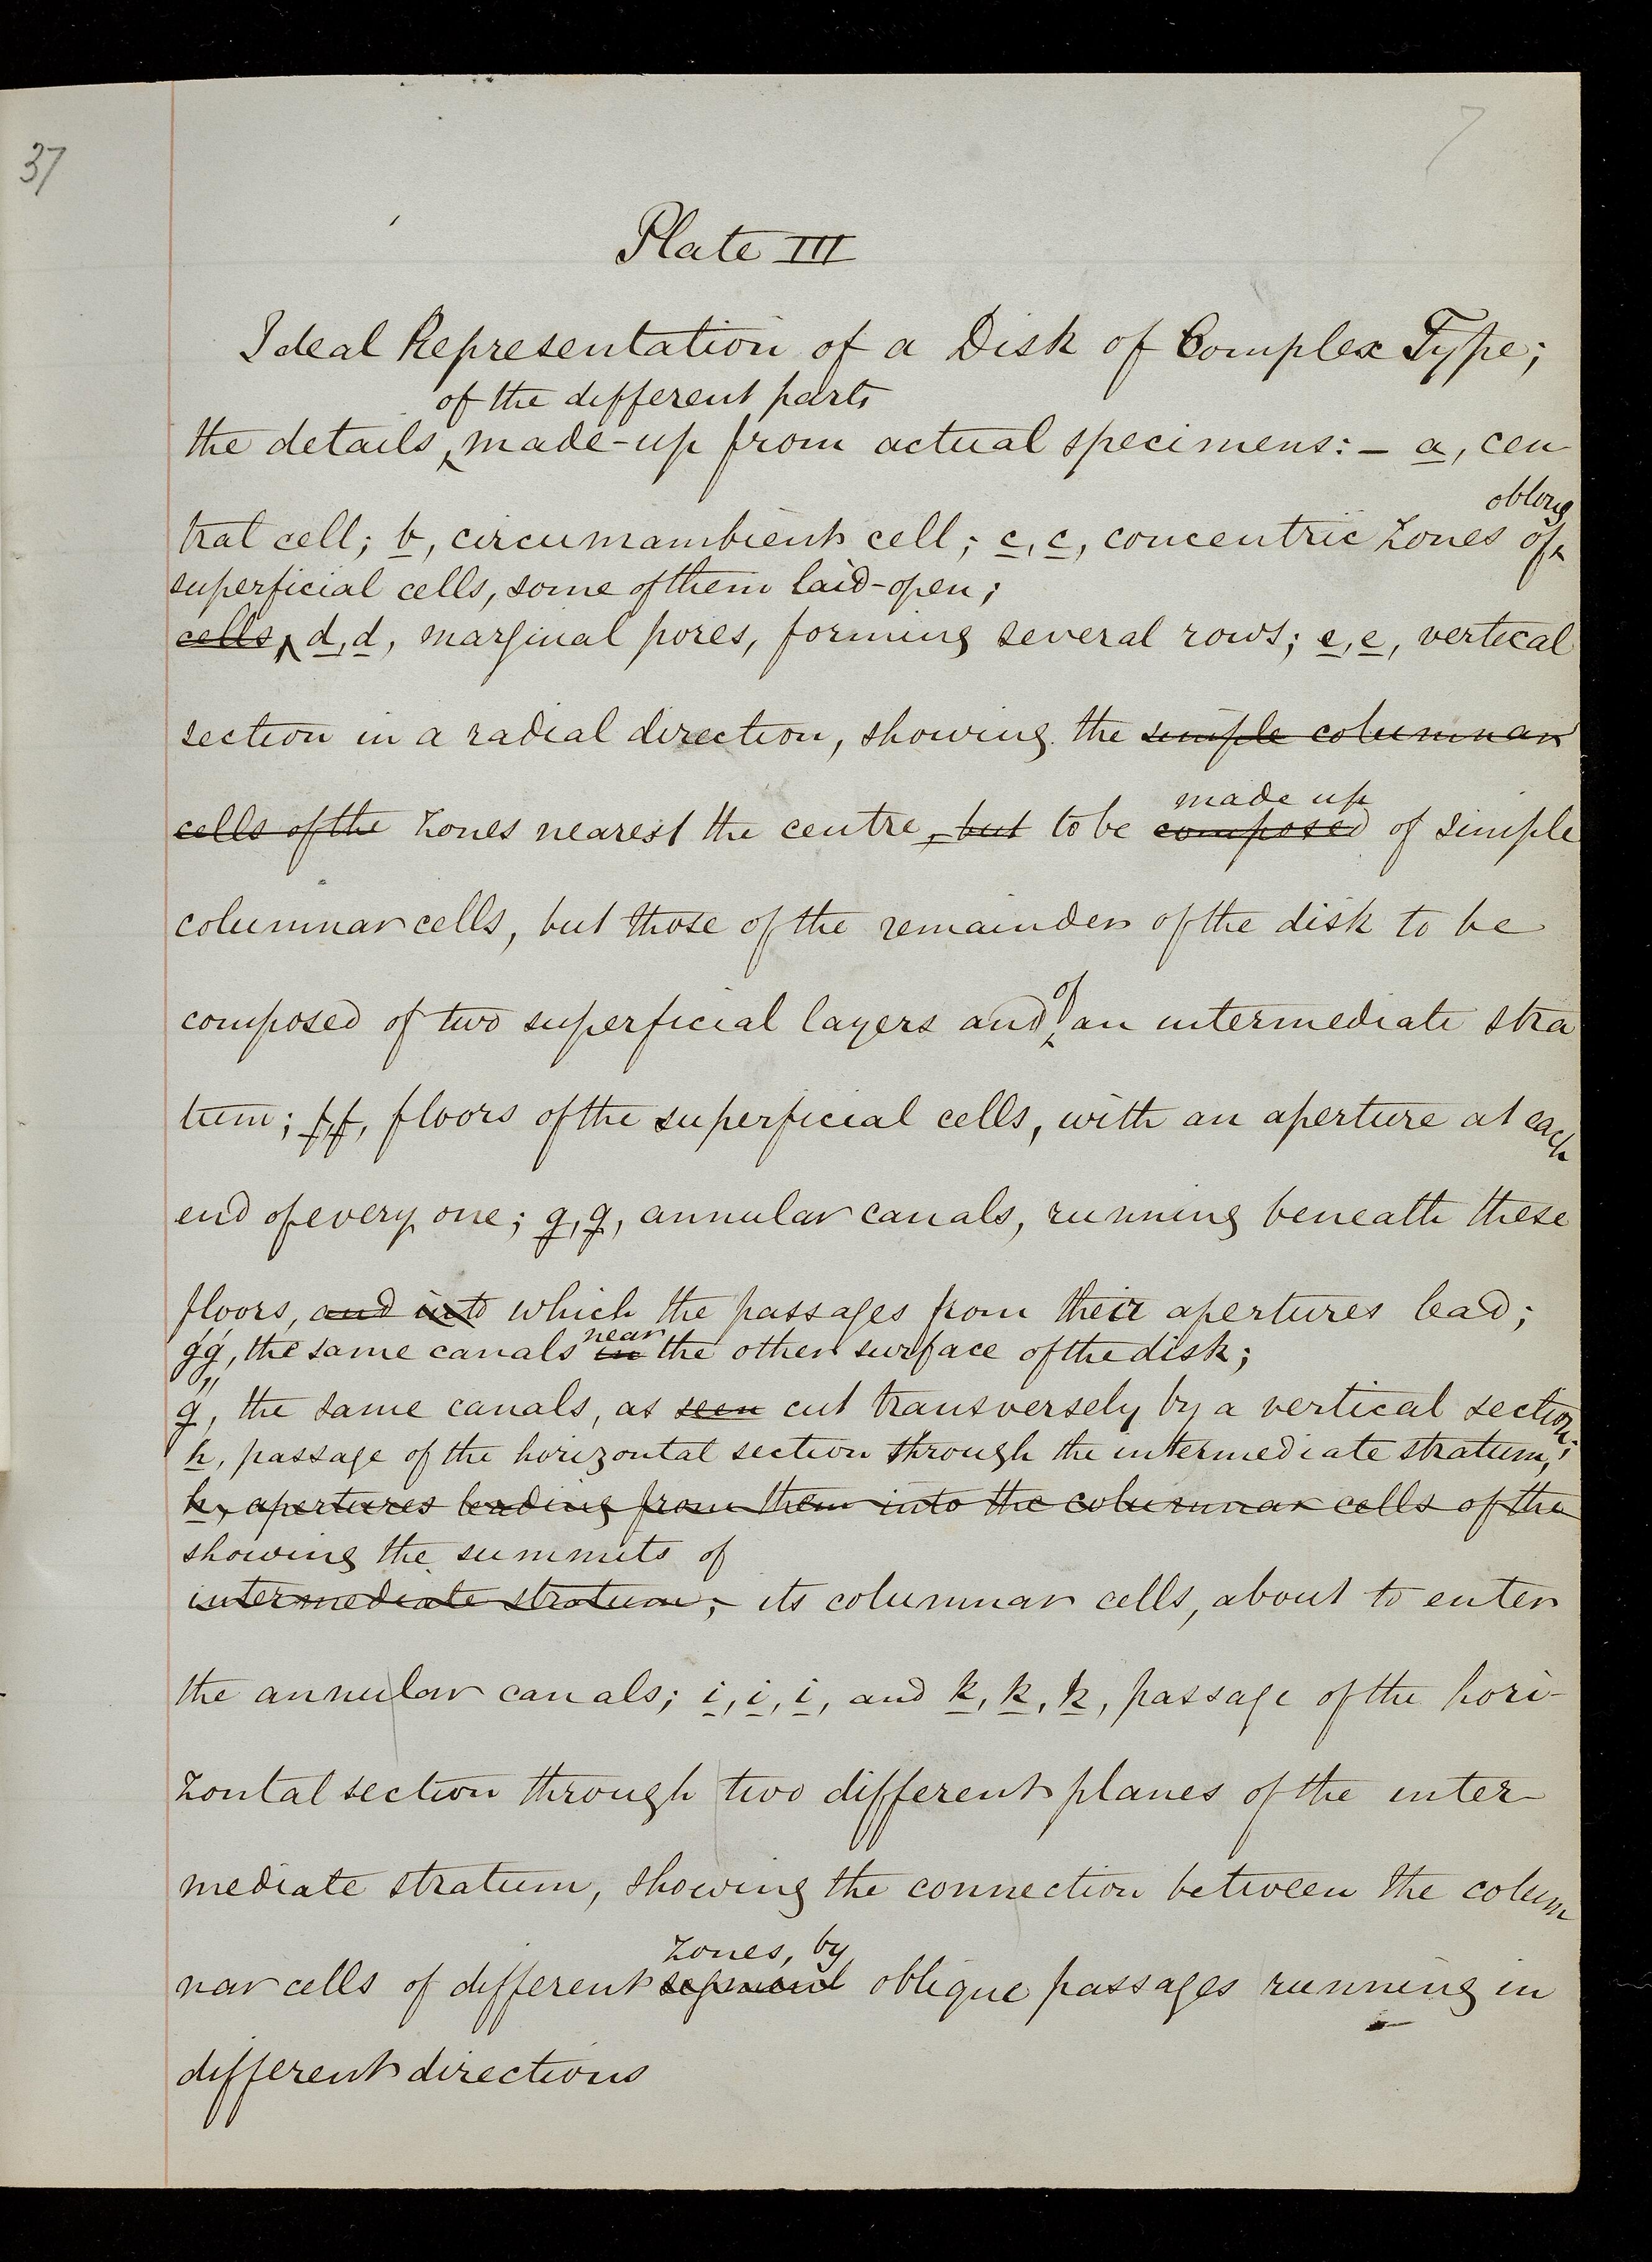 37
7
Plate III
Ideal Representation of a Disk of Complex Type;
of the different parts
the details made-up from actual specimens: – a, cen
oblong
tral cell; b, circumambient cell; c, c, concentric zones of
superficial cells, some of them laid-open;
cells, d, d, marginal pores, forming several rows; e, e, vertical
section in a radial direction, showing the simple columnar
made up
cells of the zones nearest the centre, but to be composed of simple
columnar cells, but those of the remainder of the disk to be
of
composed of two superficial layers and an intermediate stra
tum; f, f, floors of the superficial cells, with an aperture at each
end of every one; g, g, annular canals, running beneath these
floors, and into which the passages from their apertures lead;
near
g'g', the same canals in the other surface of the disk;
g'', the same canals, as seen cut transversely by a vertical section;
h, passage of the horizontal section through the intermediate stratum,
h, apertures leading from them into the columnar cells of the
showing the summits of
intermediate stratum; its columnar cells, about to enter
the annular canals; i, i, i, and k, k, k, passage of the hori-
zontal section through two different planes of the inter-
mediate stratum, showing the connection between the colum
zones, by
nar cells of different segment oblique passages running in
different directions